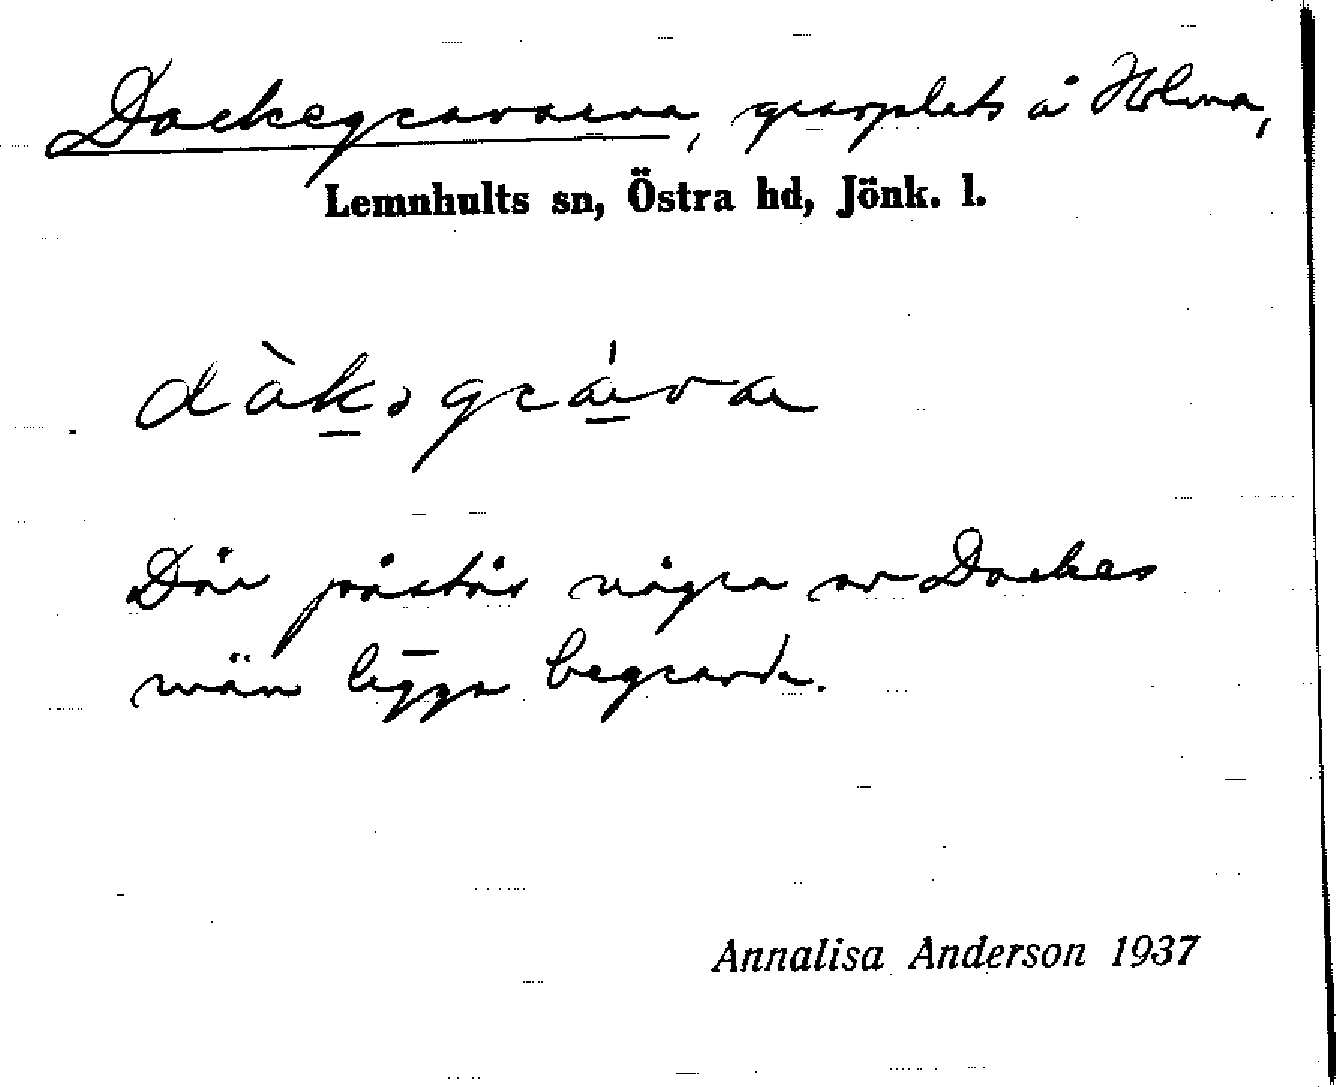 Dackegravarna, gravplats å Holma,
Lemnhults sn, Östra hd, Jönk. l.
dàk̲ǝgrá̲va
Där påstås några av Dackes
män ligga begravda.
Annalisa Anderson 1937